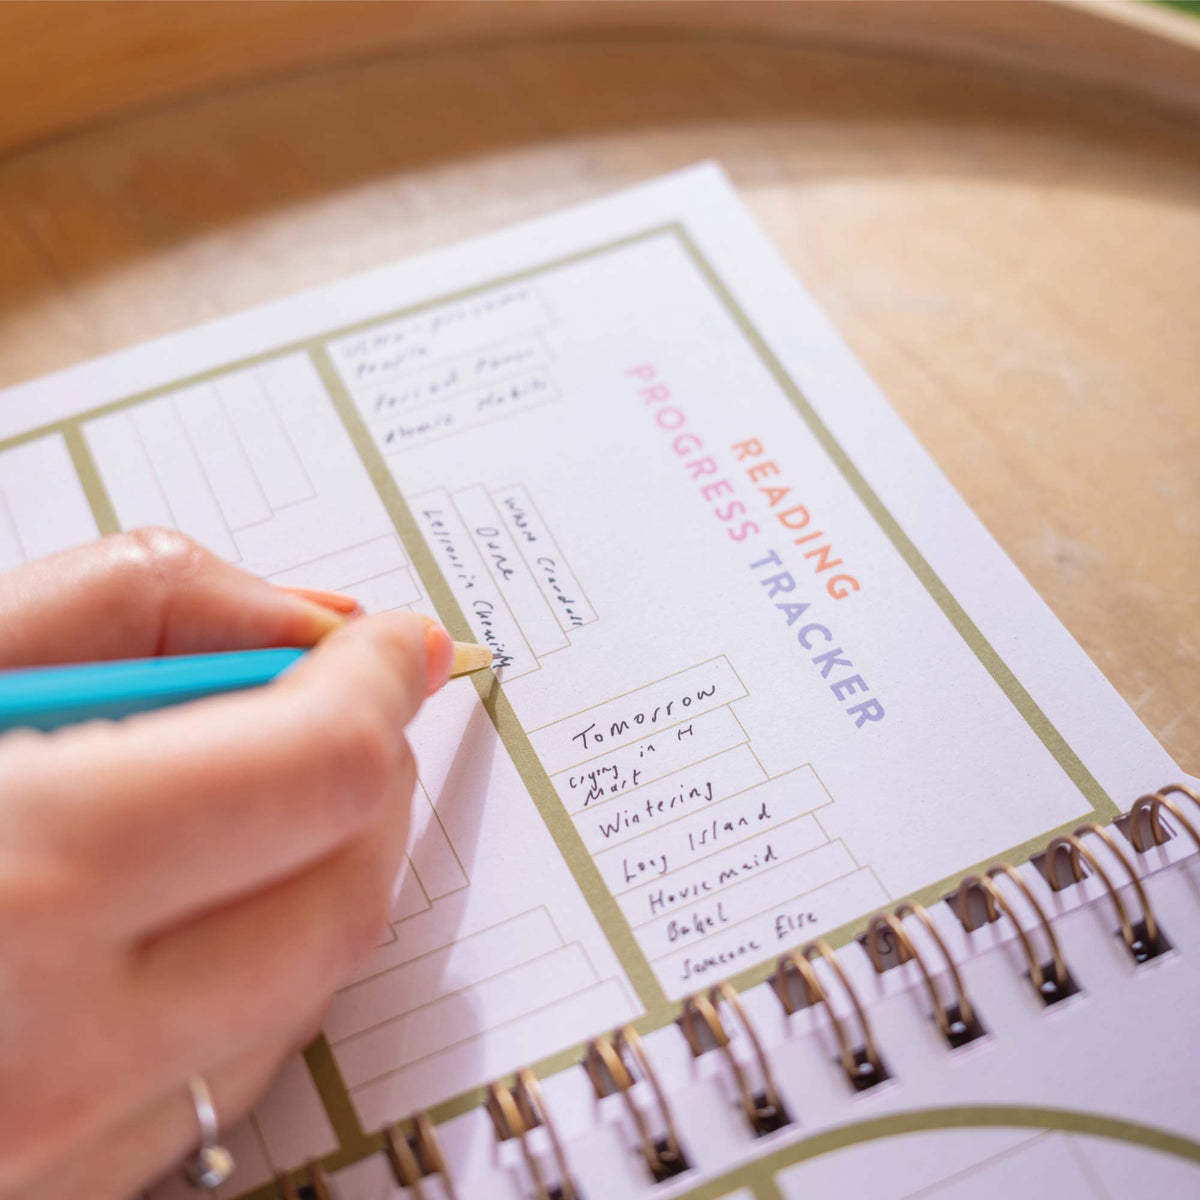 READING
PROGRESS TRACKER
Ultra-processed
People
Period Power
Atomic Habits
Where Crawdads
Dune
Lessons in Chemistry
Tomorrow
Crying in H
Mart
Wintering
Long Island
Housemaid
Babel
Someone Else